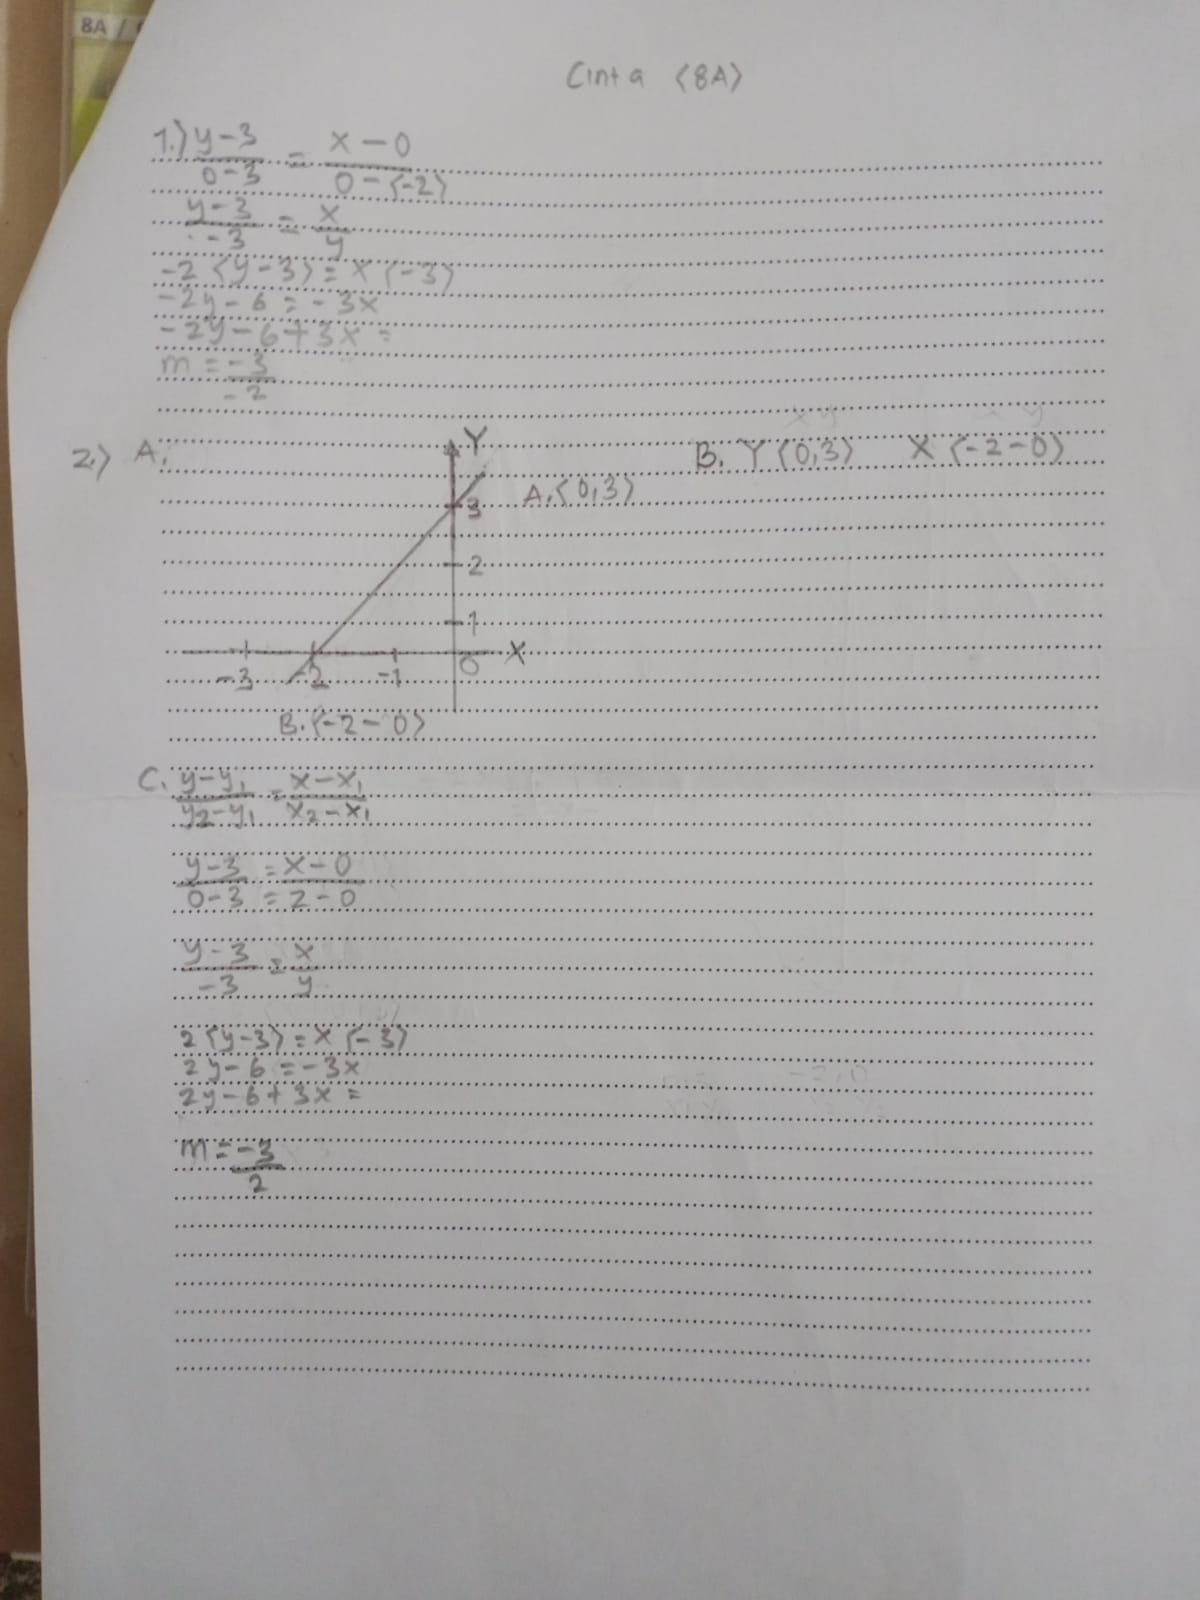 8A /
Cinta (8A)
1.) y-3 / 0-3 = x-0 / 0-(-2)
y-3 / -3 = x / y
-2 (y-3) = x (-3)
-2y-6 = -3x
-2y-6+3x =
m = -3 / -2
2.) A.
Y
B. Y (0,3) X (-2-0)
A. (0,3)
3
2
1
-3 -2 -1 0 X
B. (-2-0)
C. y-y1 / y2-y1 = x-x1 / x2-x1
y-3 / 0-3 = x-0 / 2-0
y-3 / -3 = x / y
2 (y-3) = x (-3)
2y-6 = -3x
2y-6+3x =
m = -3 / 2